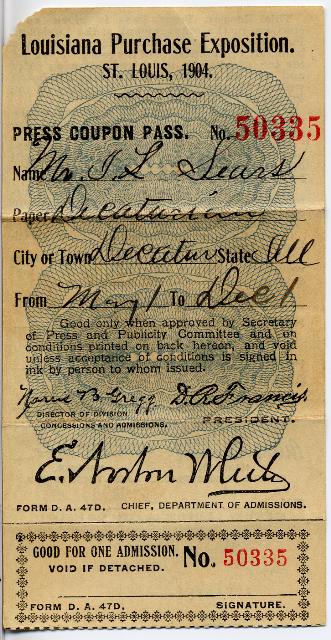 Louisiana Purchase Exposition.
ST. LOUIS, 1904.
PRESS COUPON PASS. No. 50335
Name Mr. I. L. Sears
Paper Decaturian
City or Town Decatur State Ill
From May 1 To Dec 1
Good only when approved by Secretary
of Press and Publicity Committee and on
conditions printed on back hereon, and void
unless acceptance of conditions is signed in
ink by person to whom issued.
Norris B. Gregg D. R. Francis
DIRECTOR OF DIVISION
CONCESSIONS AND ADMISSIONS.
PRESIDENT.
E. Norton White
FORM D. A. 47D. CHIEF, DEPARTMENT OF ADMISSIONS.
GOOD FOR ONE ADMISSION. No. 50335
VOID IF DETACHED.
FORM D. A. 47D. SIGNATURE.